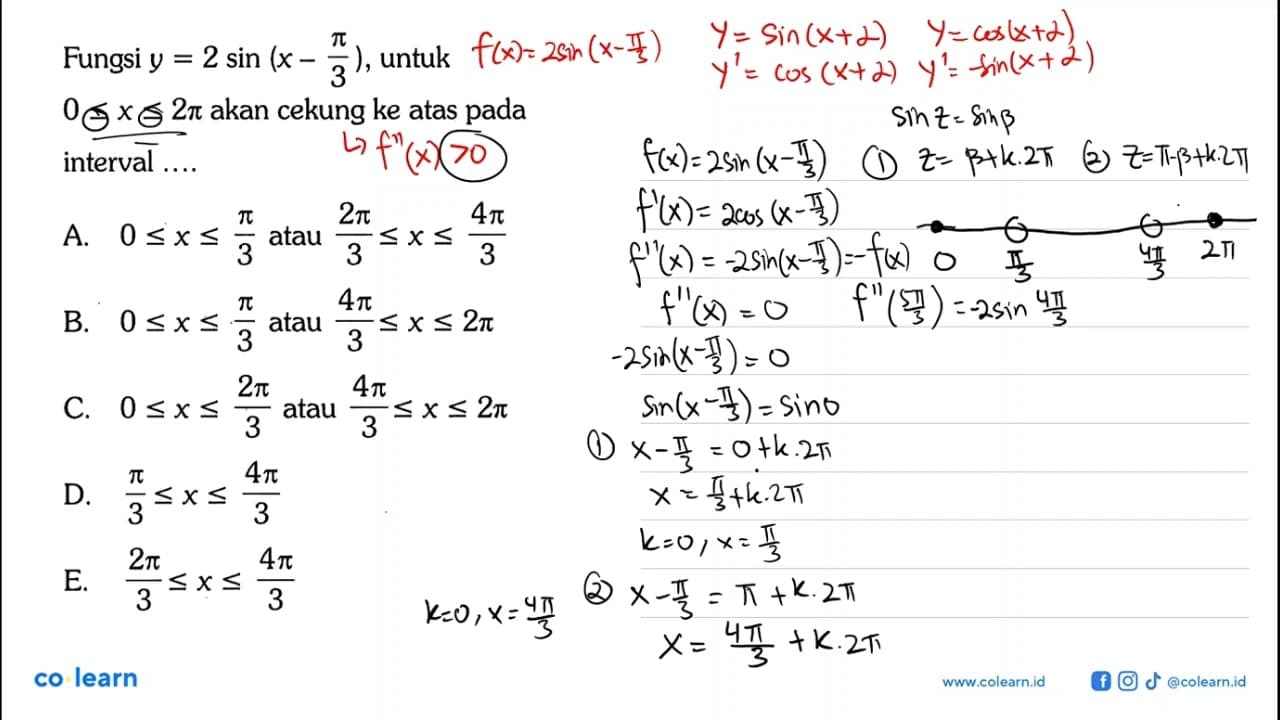 Fungsi y = 2 sin (x − π/3), untuk
0 ≤ x ≤ 2π akan cekung ke atas pada
interval ....
A. 0 ≤ x ≤ π/3 atau 2π/3 ≤ x ≤ 4π/3
B. 0 ≤ x ≤ π/3 atau 4π/3 ≤ x ≤ 2π
C. 0 ≤ x ≤ 2π/3 atau 4π/3 ≤ x ≤ 2π
D. π/3 ≤ x ≤ 4π/3
E. 2π/3 ≤ x ≤ 4π/3
f(x) = 2sin(x-π/3)
↳ f''(x) >0
y = sin(x+2) y = cos(x+2)
y' = cos(x+2) y' = -sin(x+2)
sin z = sin β
① z = β+k.2π ② z = π-β+k.2π
f(x) = 2sin(x-π/3)
f'(x) = 2cos(x-π/3)
f''(x) = -2sin(x-π/3) = -f(x)
0 π/3 4π/3 2π
f''(x) = 0 f''(5π/3) = -2sin 4π/3
-2sin(x-π/3) = 0
sin(x-π/3) = sin0
① x-π/3 = 0+k.2π
x = π/3+k.2π
k=0, x=π/3
② x-π/3 = π+k.2π
x = 4π/3 + k.2π
k=0, x=4π/3
co learn
www.colearn.id
@colearn.id